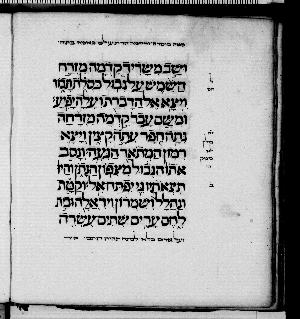 ושב משריד קדמה מזרח
השמש על גבול כסלת תבר
ויצא אל הדברת ועלה יפיע
ומשם עבר קדמה מזרחה
גתה חפר עתה קצין ויצא
רמון המתאר הנעה ונסב
אתו הגבול מצפון חנתן והיו
תצאתיו גי יפתח אל וקטת
ונהלל ושמרון ויראלה ובית
לחם ערים שתים עשרה